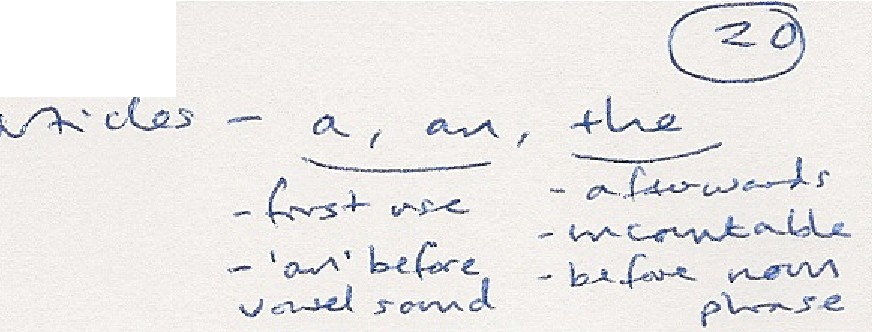 20
articles - a, an, the
- first use
- 'an' before
vowel sound
- afterwards
- uncountable
- before noun
phrase